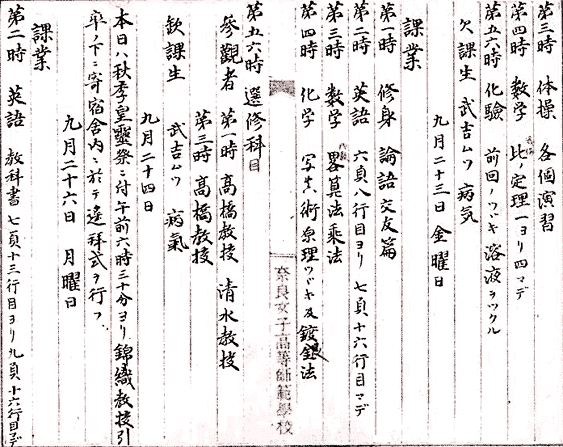 第三時 体操 各個演習
第四時 数学 幾何 比ノ定理一ヨリ四マデ
第五六時 化験 前回ノツヾキ 溶液ヲツクル
欠課生 武吉ムツ 病気
九月二十三日 金曜日
課業
第一時 修身 論語 交友篇
第二時 英語 六頁八行目ヨリ 七頁十六行目マデ
第三時 数学 代数 畧算法乗法
第四時 化学 写真術原理ツヾキ及鍍銀法
第五六時 選修科目
奈良女子高等師範學校
参觀者 第一時 高橋教授 清水教授
第三時 高橋教授
欽課生 武吉ムツ 病氣
九月二十四日
本日ハ秋季皇霊祭ニ付午前六時三十分ヨリ錦織教授引
率ノ下ニ寄宿舎内ニ於テ遥拝式ヲ行フ
九月二十六日 月曜日
課業
第二時 英語 教科書七頁十三行目ヨリ九頁十六行目マデ